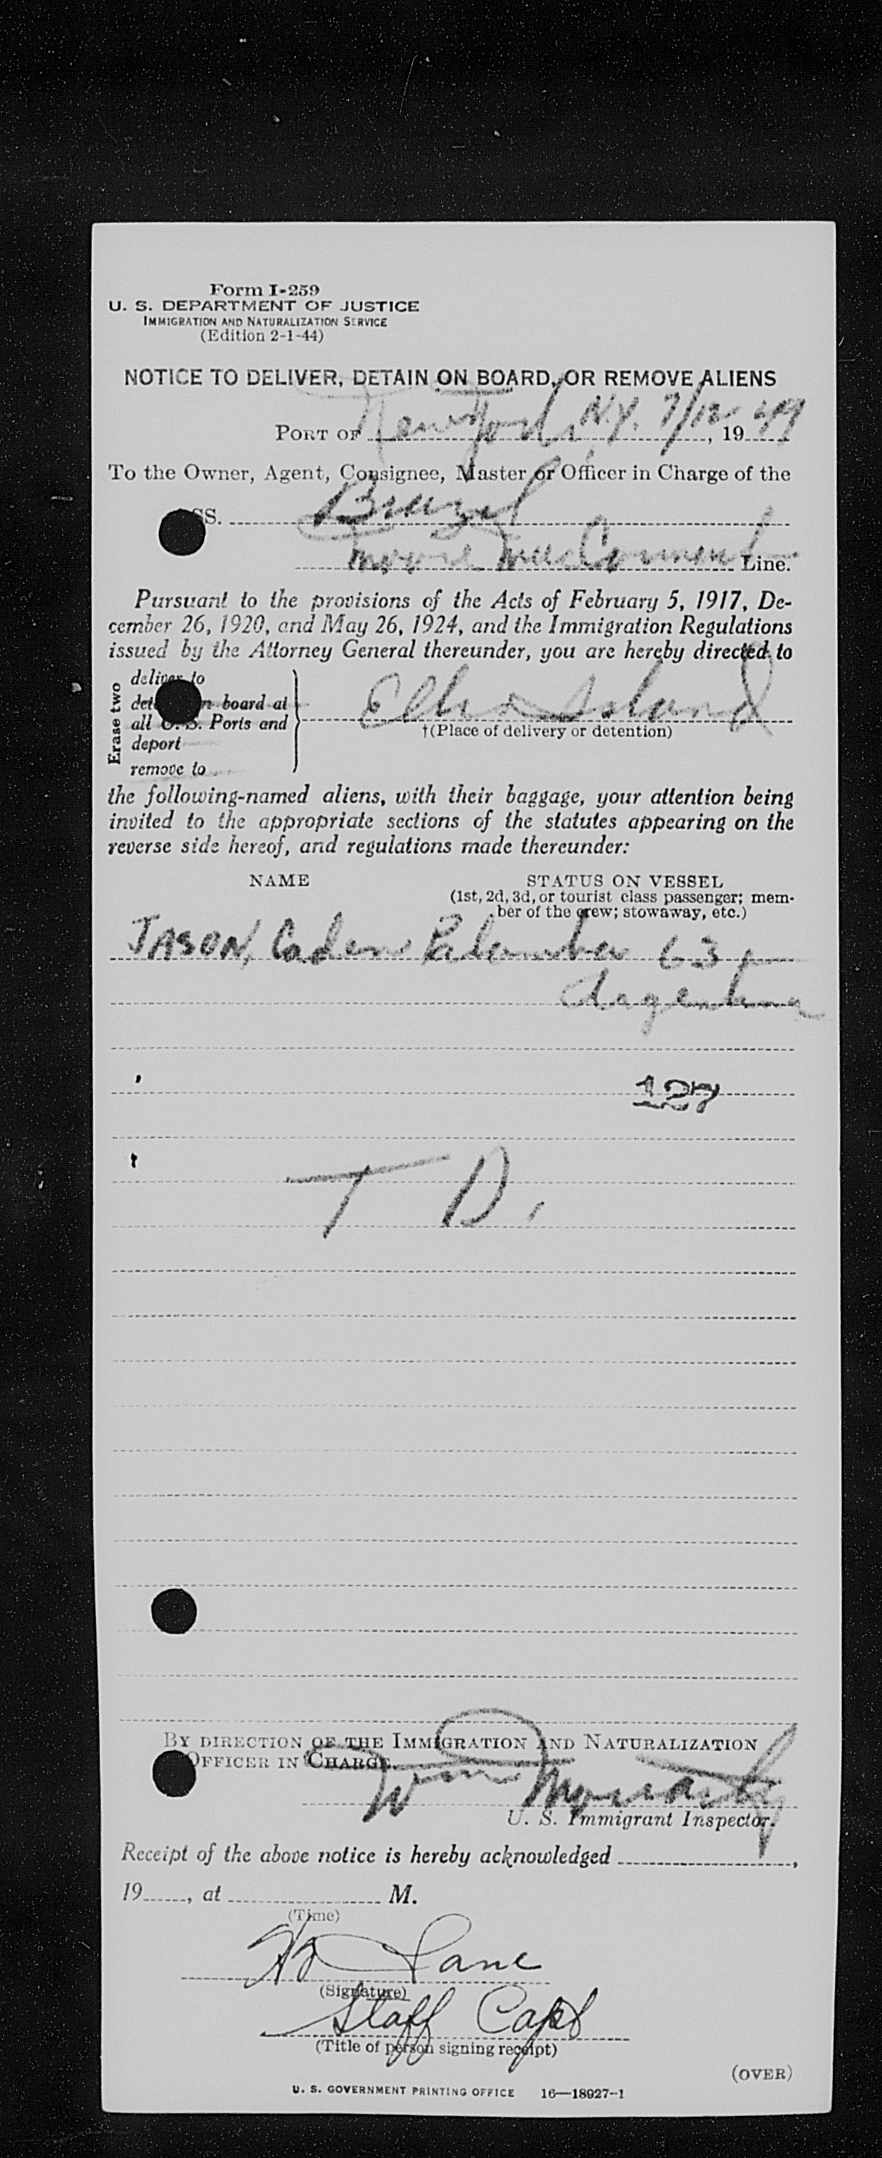 Form I-259
U. S. DEPARTMENT OF JUSTICE
IMMIGRATION AND NATURALIZATION SERVICE
(Edition 2-1-44)
NOTICE TO DELIVER, DETAIN ON BOARD, OR REMOVE ALIENS
PORT OF New York, N.Y. 7/18, 1949
To the Owner, Agent, Consignee, Master or Officer in Charge of the
SS. Brazil
Moore MacCormack Line.
Pursuant to the provisions of the Acts of February 5, 1917, De-
cember 26, 1920, and May 26, 1924, and the Immigration Regulations
issued by the Attorney General thereunder, you are hereby directed to
Erase two
deliver to
detain on board at
all U. S. Ports and
deport
remove to
Ellis Island
†(Place of delivery or detention)
the following-named aliens, with their baggage, your attention being
invited to the appropriate sections of the statutes appearing on the
reverse side hereof, and regulations made thereunder:
NAME STATUS ON VESSEL
(1st, 2d, 3d, or tourist class passenger; mem-
ber of the crew; stowaway, etc.)
JASON, 63
Argentina
127
T D.
BY DIRECTION OF THE IMMIGRATION AND NATURALIZATION
OFFICER IN CHARGE.
Wm Moriarty
U. S. Immigrant Inspector.
Receipt of the above notice is hereby acknowledged ,
19 , at M.
(Time)
Lane
(Signature)
Staff Capt
(Title of person signing receipt)
(OVER)
U. S. GOVERNMENT PRINTING OFFICE 16—18927-1